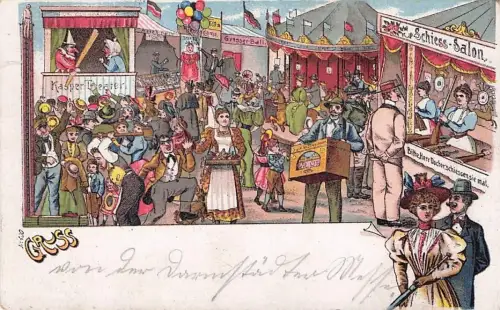 Grosser Ball
Kasper Theater
Schiess-Salon
Bitte, Herr Bucher schiessen sie mal.
Gruss
von der Darmstädter Messe